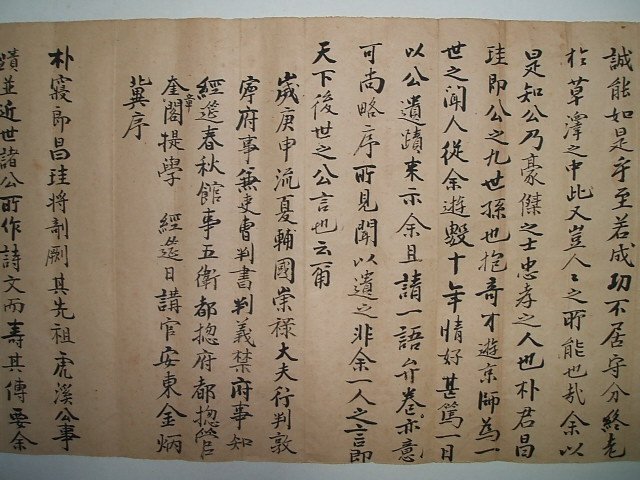 誠能如是乎至若成功不居守分終老
於草澤之中此又豈人々之所能也哉余以
是知公乃豪傑之士忠孝之人也朴君昌
珪即公之九世孫也抱奇才遊京師為一
世之聞人從余遊數十年情好甚篤一日
以公遺蹟来示余且請一語弁卷亦意
可尚略序所見聞以遺之非余一人之言即
天下後世之公言也云爾
歲庚申流夏輔國崇祿大夫行判敦
寧府事兼吏曹判書判義禁府事知
經筵春秋館事五衛都摠府都摠管
奎章閣提學 經筵日講官安東金炳
冀序
朴寢郎昌珪將剞劂其先祖虎溪公事
蹟並近世諸公所作詩文而壽其傳要余